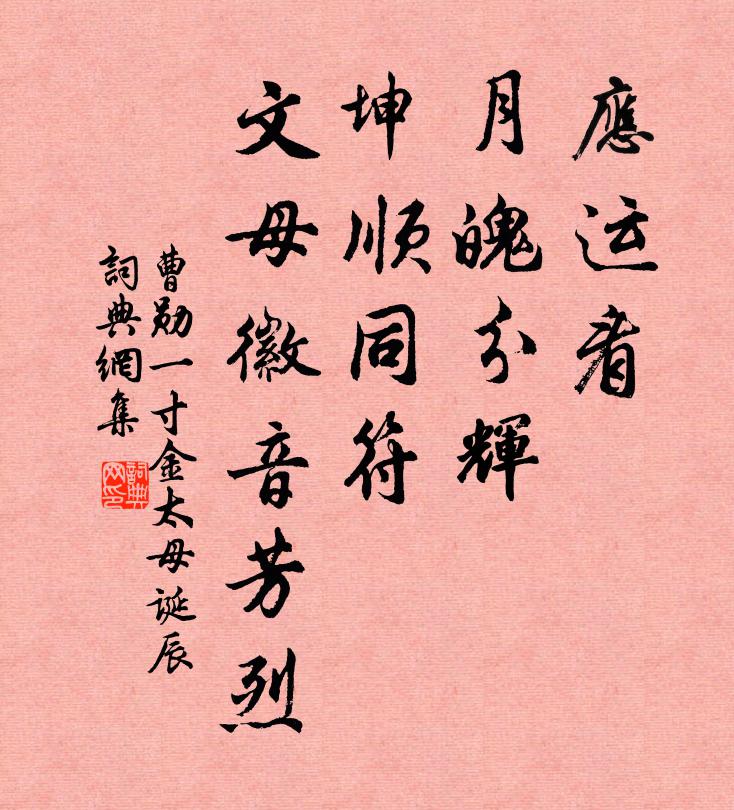 應运看
月魄分輝
坤順同符
文母徽音芳烈
曹勋一寸金太母誕辰
詞典網集
詞典網印